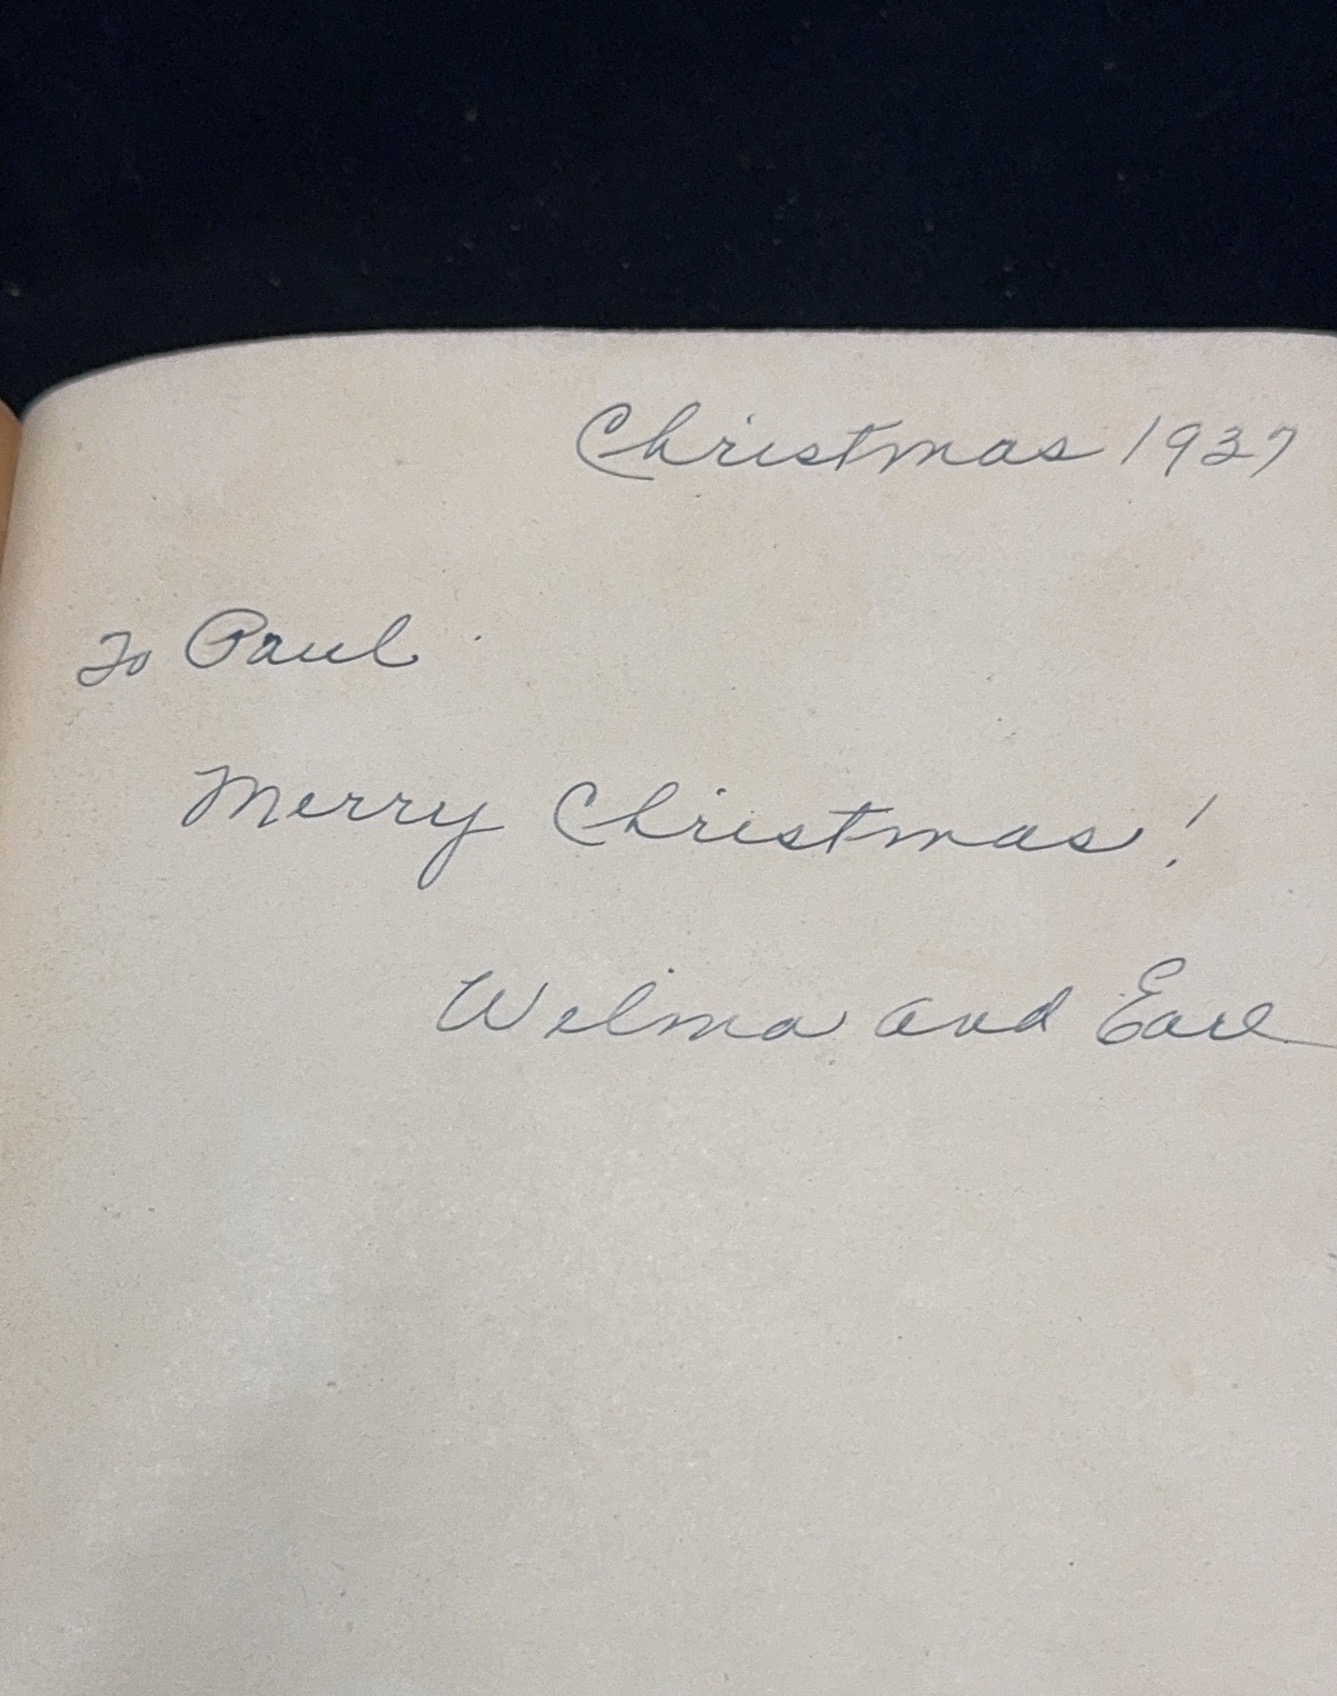 Christmas 1937
To Paul
Merry Christmas!
Welma and Earl